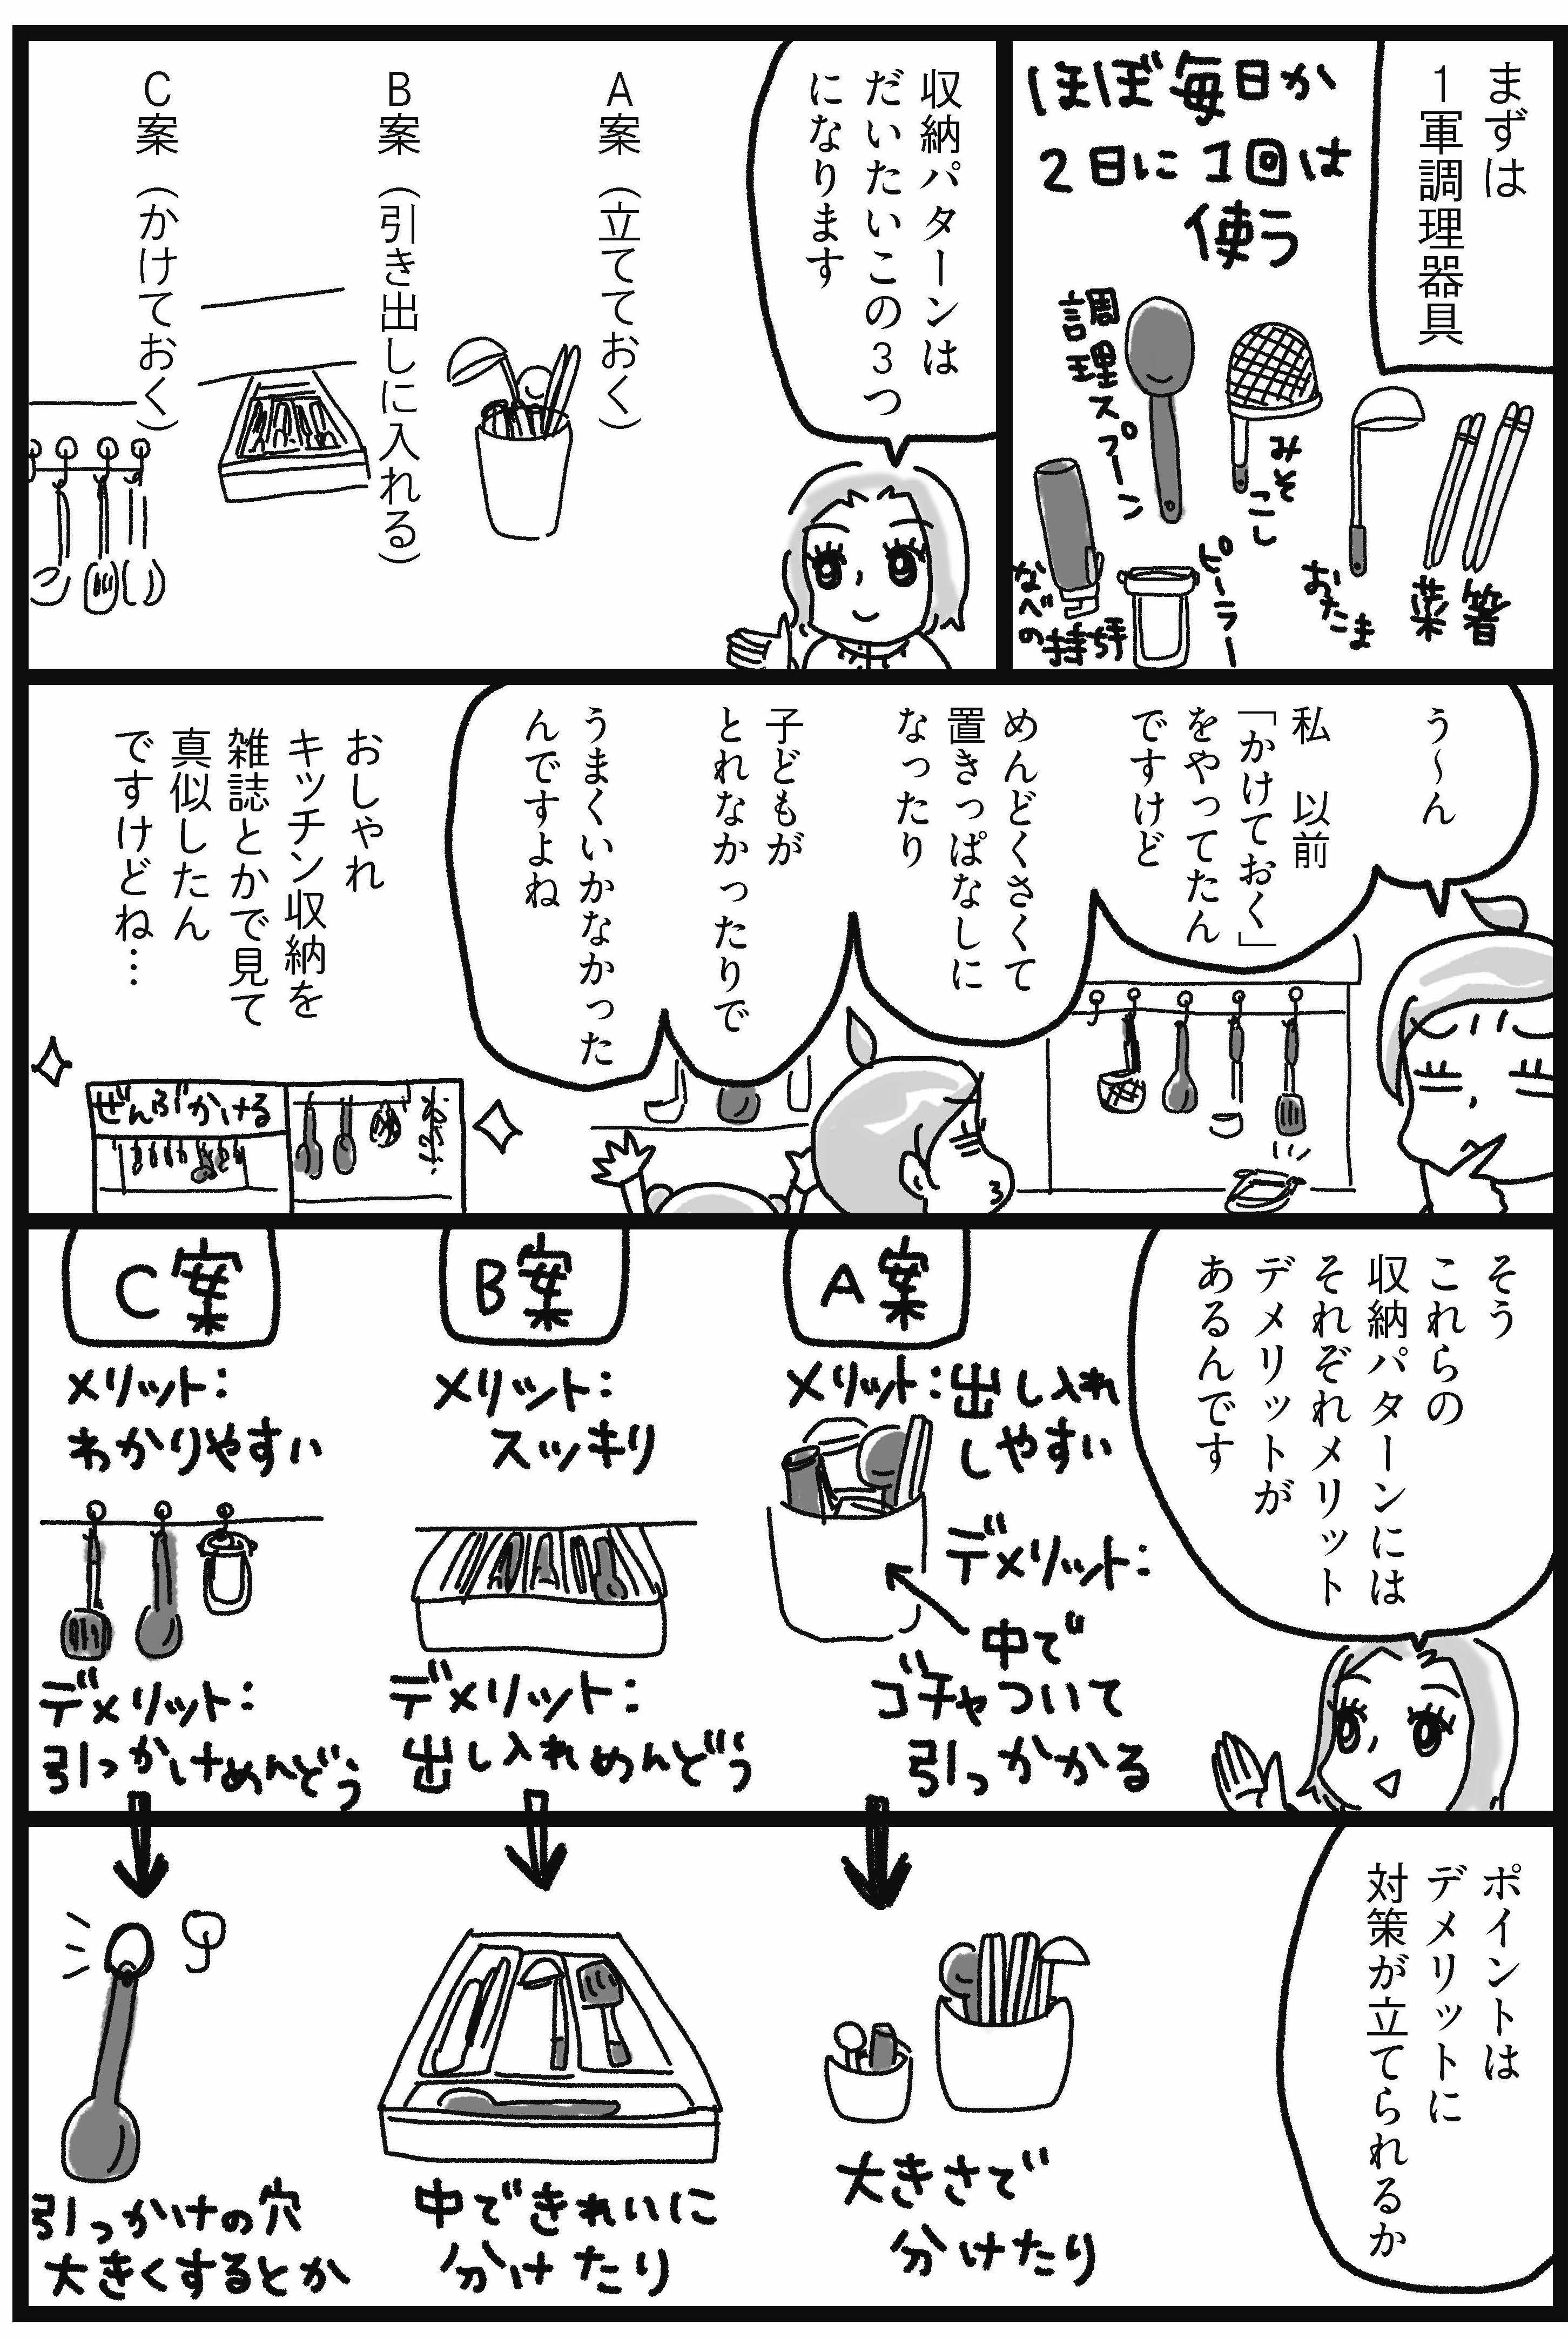 まずは
1軍調理器具
ほぼ毎日か
2日に1回は
使う
菜箸
おたま
みそこし
調理スプーン
ピーラー
なべの
持ち手
収納パターンは
だいたいこの3つ
になります
A案(立てておく)
B案(引き出しに入れる)
C案(かけておく)
う〜ん
私 以前
「かけておく」
をやってたん
ですけど
めんどくさくて
置きっぱなしに
なったり
子どもが
とれなかったりで
うまくいかなかった
んですよね
おしゃれ
キッチン収納を
雑誌とかで見て
真似したん
ですけどね…
ぜんぶかける
そう
これらの
収納パターンには
それぞれメリット
デメリットが
あるんです
A案
メリット:出し入れ
しやすい
デメリット:
中で
ゴチャついて
引っかかる
B案
メリット:
スッキリ
デメリット:
出し入れめんどう
C案
メリット:
わかりやすい
デメリット:
引っかけめんどう
ポイントは
デメリットに
対策が立てられるか
大きさで
分けたり
中できれいに
分けたり
引っかけの穴
大きくするとか